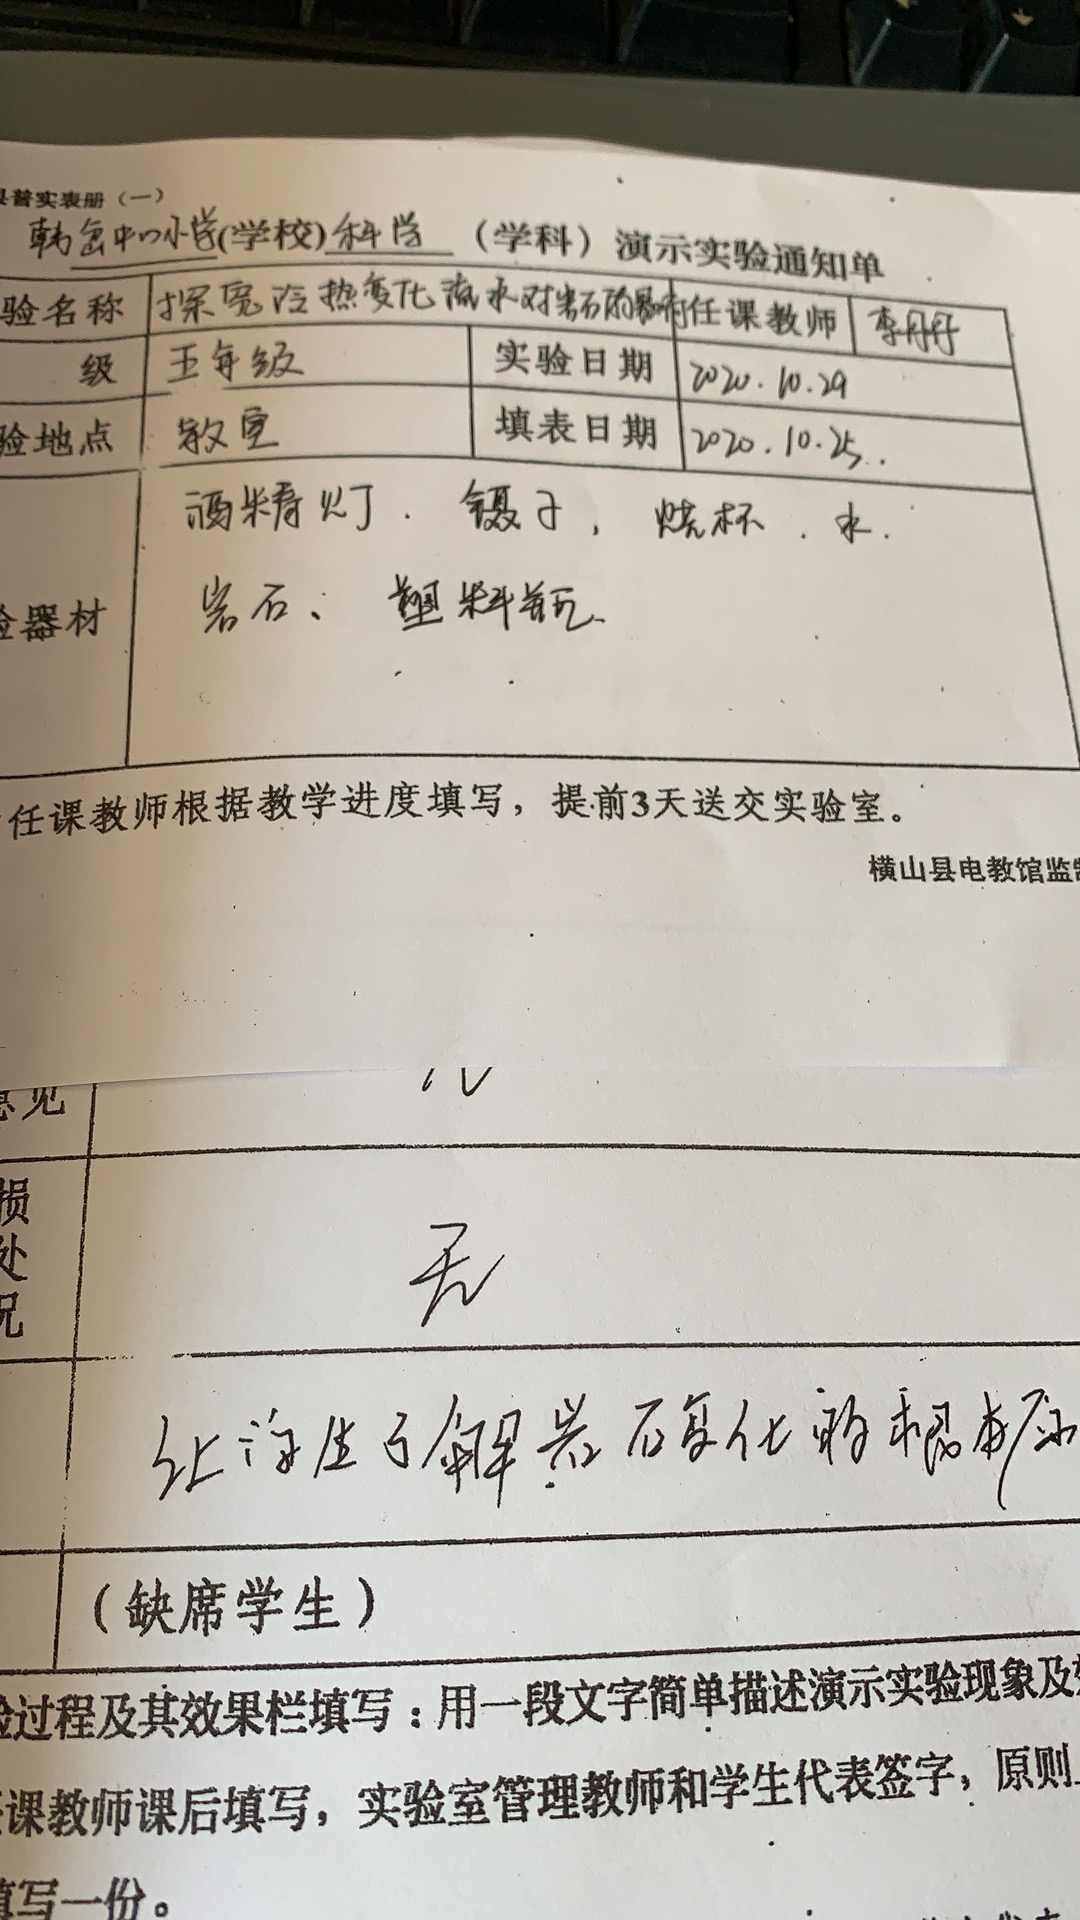 县普实表册（一）
韩岔中心小学(学校)科学（学科）演示实验通知单
验名称 探究冷热变化流水对岩石的影响 任课教师 李丹丹
级 五年级 实验日期 2020.10.29
验地点 教室 填表日期 2020.10.25.
酒精灯. 镊子, 烧杯. 水.
验器材 岩石、塑料瓶.
任课教师根据教学进度填写，提前3天送交实验室。
横山县电教馆监制
意见
损
处 无
况
让学生了解岩石变化的根本原
（缺席学生）
验过程及其效果栏填写：用一段文字简单描述演示实验现象及效
课教师课后填写，实验室管理教师和学生代表签字，原则上
填写一份。